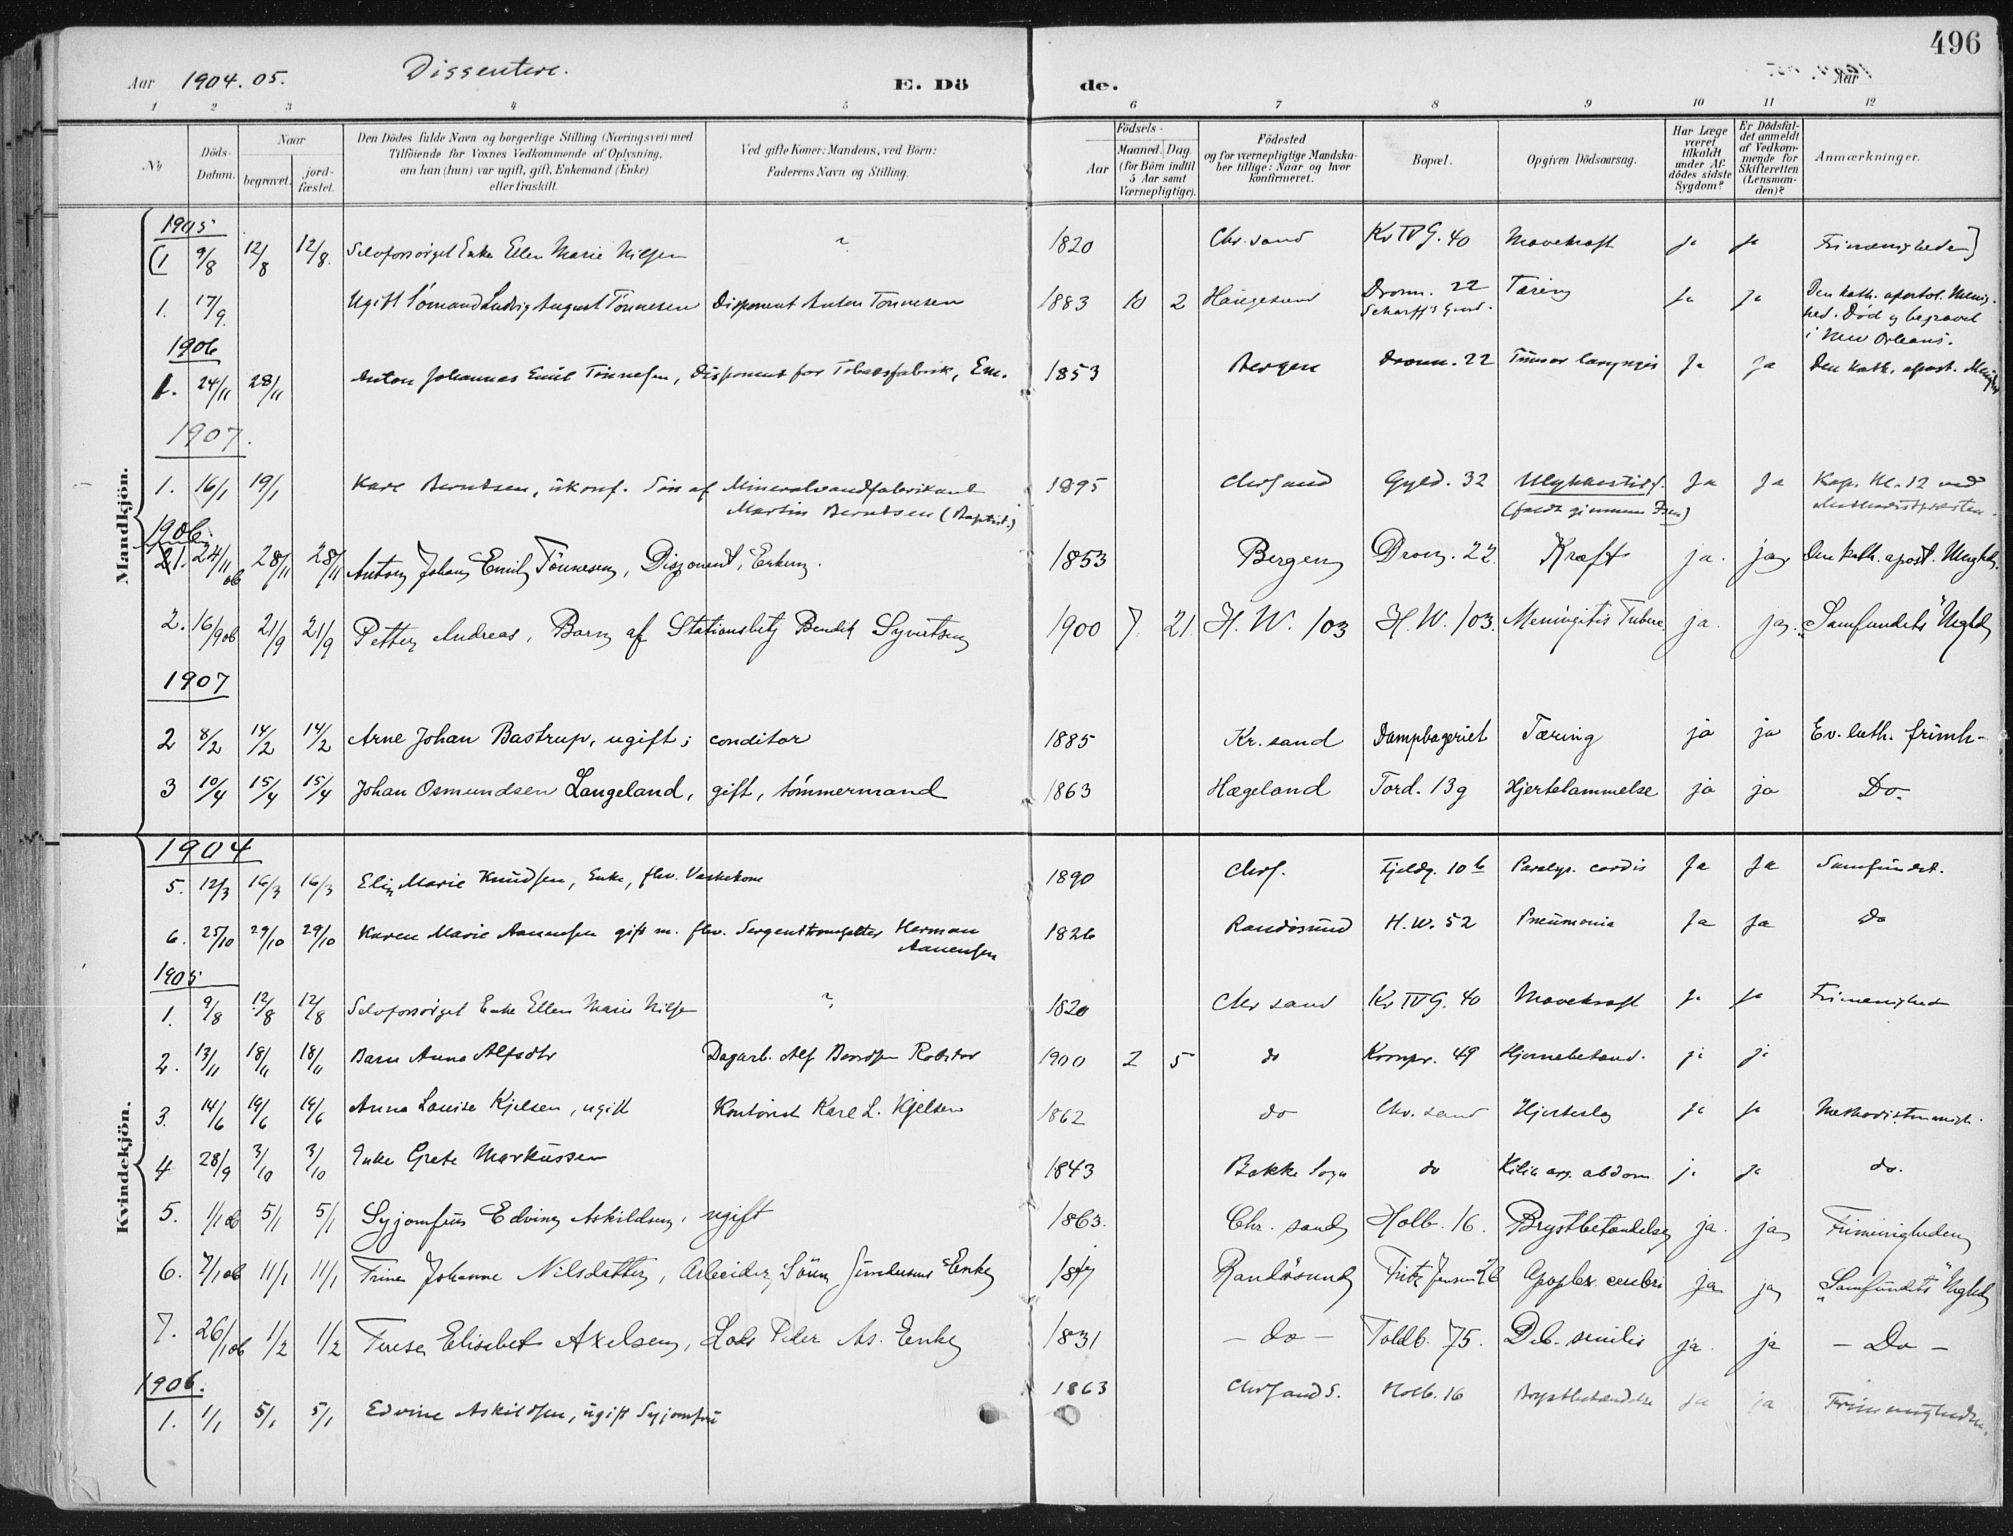 496
Aar 1904. 05. Dissentere. E. Döde. Aar
1 2 3 4 5 6 7 8 9 10 11 12
No
Döds-Datum.
Naar
begravet.
jordfæstet.
Den Dödes fulde Navn og borgerlige Stilling (Næringsvei) med Tilföiende for Voxnes Vedkommende af Oplysning, om han (hun) var ugift, gift, Enkemand (Enke) eller fraskilt.
Ved gifte Koner: Mandens, ved Börn: Faderens Navn og Stilling.
Födsels-
Aar
Maaned. Dag.
(for Börn indtil 5 Aar samt Værnepligtige).
Födested og for værnepligtige Mandskaber tillige: Naar og hvor konfirmeret.
Bopæl.
Opgiven Dödsaarsag.
Har Læge været tilkaldt under Afdödes sidste Sygdom?
Er Dödsfaldet anmeldt af Vedkommende for Skifteretten (Lensmanden)?
Anmærkninger.
Mandkjön.
1905
(1 9/8 12/8 12/8. Selvforsörget Enke Ellen Marie Nilsen ? 1820 Chr. sand Kv IV G. 40 Mavekraft ja ja Frimenigheden]
1. 17/9. Ugift Sömand Ludvig August Tönnesen Disponent Anton Tönnesen 1883 10 2 Haugesund Dronn. 22 Tæring Ja Ja Den kath. apostol. Menighed. Död og begravet
i New Orleans.
1906
1. 24/11 28/11 Anton Johannes Emil Tönnesen, Disponent for Tobaksfabrik, Em. 1853 Bergen Dronn. 22 Tumor laryngis Ja Ja Den kath. apost. Menighed
1907.
1. 16/1 19/1 Karl Berntsen, ukonf. Sön af Mineralvandfabrikant 1895 Chrsand Gyld. 32 Ulykkestilf. Ja Ja Kap. Kl. 12 ved
Martin Berntsen (Baptist.) (faldt gjennem Isen) Methodistpræsten.
1906.
21. 24/11 06 28/11 28/11 Anton Johan Emil Tönnesen, Disponent, Enkem. 1853 Bergen Dron. 22. Kræft ja. ja Den kath. apost. Mnghd.
2. 16/9 06 21/9 21/9 Petter Andreas, Barn af Stationsbetj Bendik Syvertsen 1900 7. 21. H. W. 103 H. W. 103. Meningitis Tuberc. ja. ja. "Samfundets" Mghd
1907
2 8/2 14/2 14/2 Arne Johan Bastrup, ugift; conditor 1885 Kr. sand Dampbageriet Tæring ja ja Ev. luth. frimh-
3 10/4 15/4 15/4 Johan Osmundsen Langeland, gift, tömmermand 1863 Hægeland Tord. 13g Hjertelammelse ja ja Do.
Kvindekjön.
1904
5. 12/3 16/3 16/3 Elis Marie Knudsen, Enke, fhv. Vaskekone 1890 Chrs. Fjeldg. 10 b Paralys. cordis Ja Ja Samfundet.
6. 25/10 29/10 29/10 Karen Marie Aanensen gift m. fhv. Herman 1826 Randösund H. W. 52 Pneumonia Ja Ja Do
Aanensen
1905
1. 9/8 12/8 12/8 Selvforsörget Enke Ellen Marie Nilsen ? 1820 Chr sand Kv IV G. 40 Mavekraft ja ja Frimenighed
2. 13/11 18/11 18/11 Barn Anna Alfsdtr Dagarb. Alf 1900 2 5 do Kornpr. 49 Hjernebetænd. ja ja
3. 14/6 19/6 19/6 Anna Louise Kjelsen, ugift Kontorist Karl L. Kjelsen 1862 do Chr. sand Hjerteslag ja ja Methodistmenigh.
4 28/9 3/10 3/10 Enke Grete Markussen 1843 Bakke Sogn do abdom. ja ja do.
5. 1/1 06 5/1 5/1 Syjomfru Edvine Askildsen, ugift 1863. Chr. sand Holb. 16. Brystbetændelse ja. ja Frimenigheden
6. 7/1 06 11/1 11/1 Trine Johanne Nilsdatter, Arbeider Sören Gundersens Enke Randösund Fritz Jensen Apoplex. cerebri ja ja "Samfundets" Mghd
7. 26/1 06 1/2 1/2 Terese Elisabet Axelsen, Lods Peder As. Enke 1831 - do - Toldb. 75. Deb. senilis ja. ja - Do -
1906.
1. 1/1 5/1 5/1 Edvine Askildsen, ugift Syjomfru 1863 Chrsand S. Holb. 16 Brystbetændelse ja ja Frimenigheden.